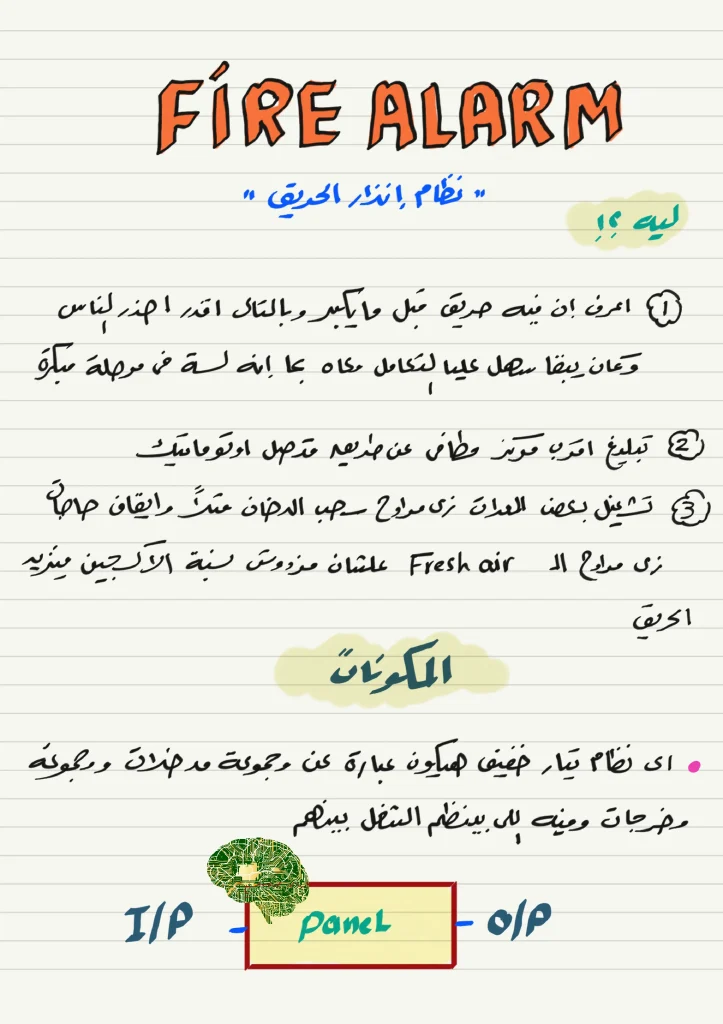 FIRE ALARM
" نظام إنذار الحريق "
ليه ؟!
① اعرف إن فيه حريق قبل ما يكبر وبالتالى اقدر احذر الناس
وكمان يبقا سهل عليا التعامل معاه بما إنه لسة فى مرحلة مبكرة
② تبليغ اقرب مركز مطافى عن طريق متصل اوتوماتيك
③ تشغيل بعض المعدات زى مراوح سحب الدخان مثلاً وايقاف حاجات
زى مراوح الـ Fresh air علشان مزودوش نسبة الأكسجين فيزيد
الحريق
المكونات
• اى نظام تيار خفيف هيكون عبارة عن مجموعة مدخلات ومجموعة
مخرجات وفيه اللى بينظم الشغل بينهم
I/P - Panel - O/P